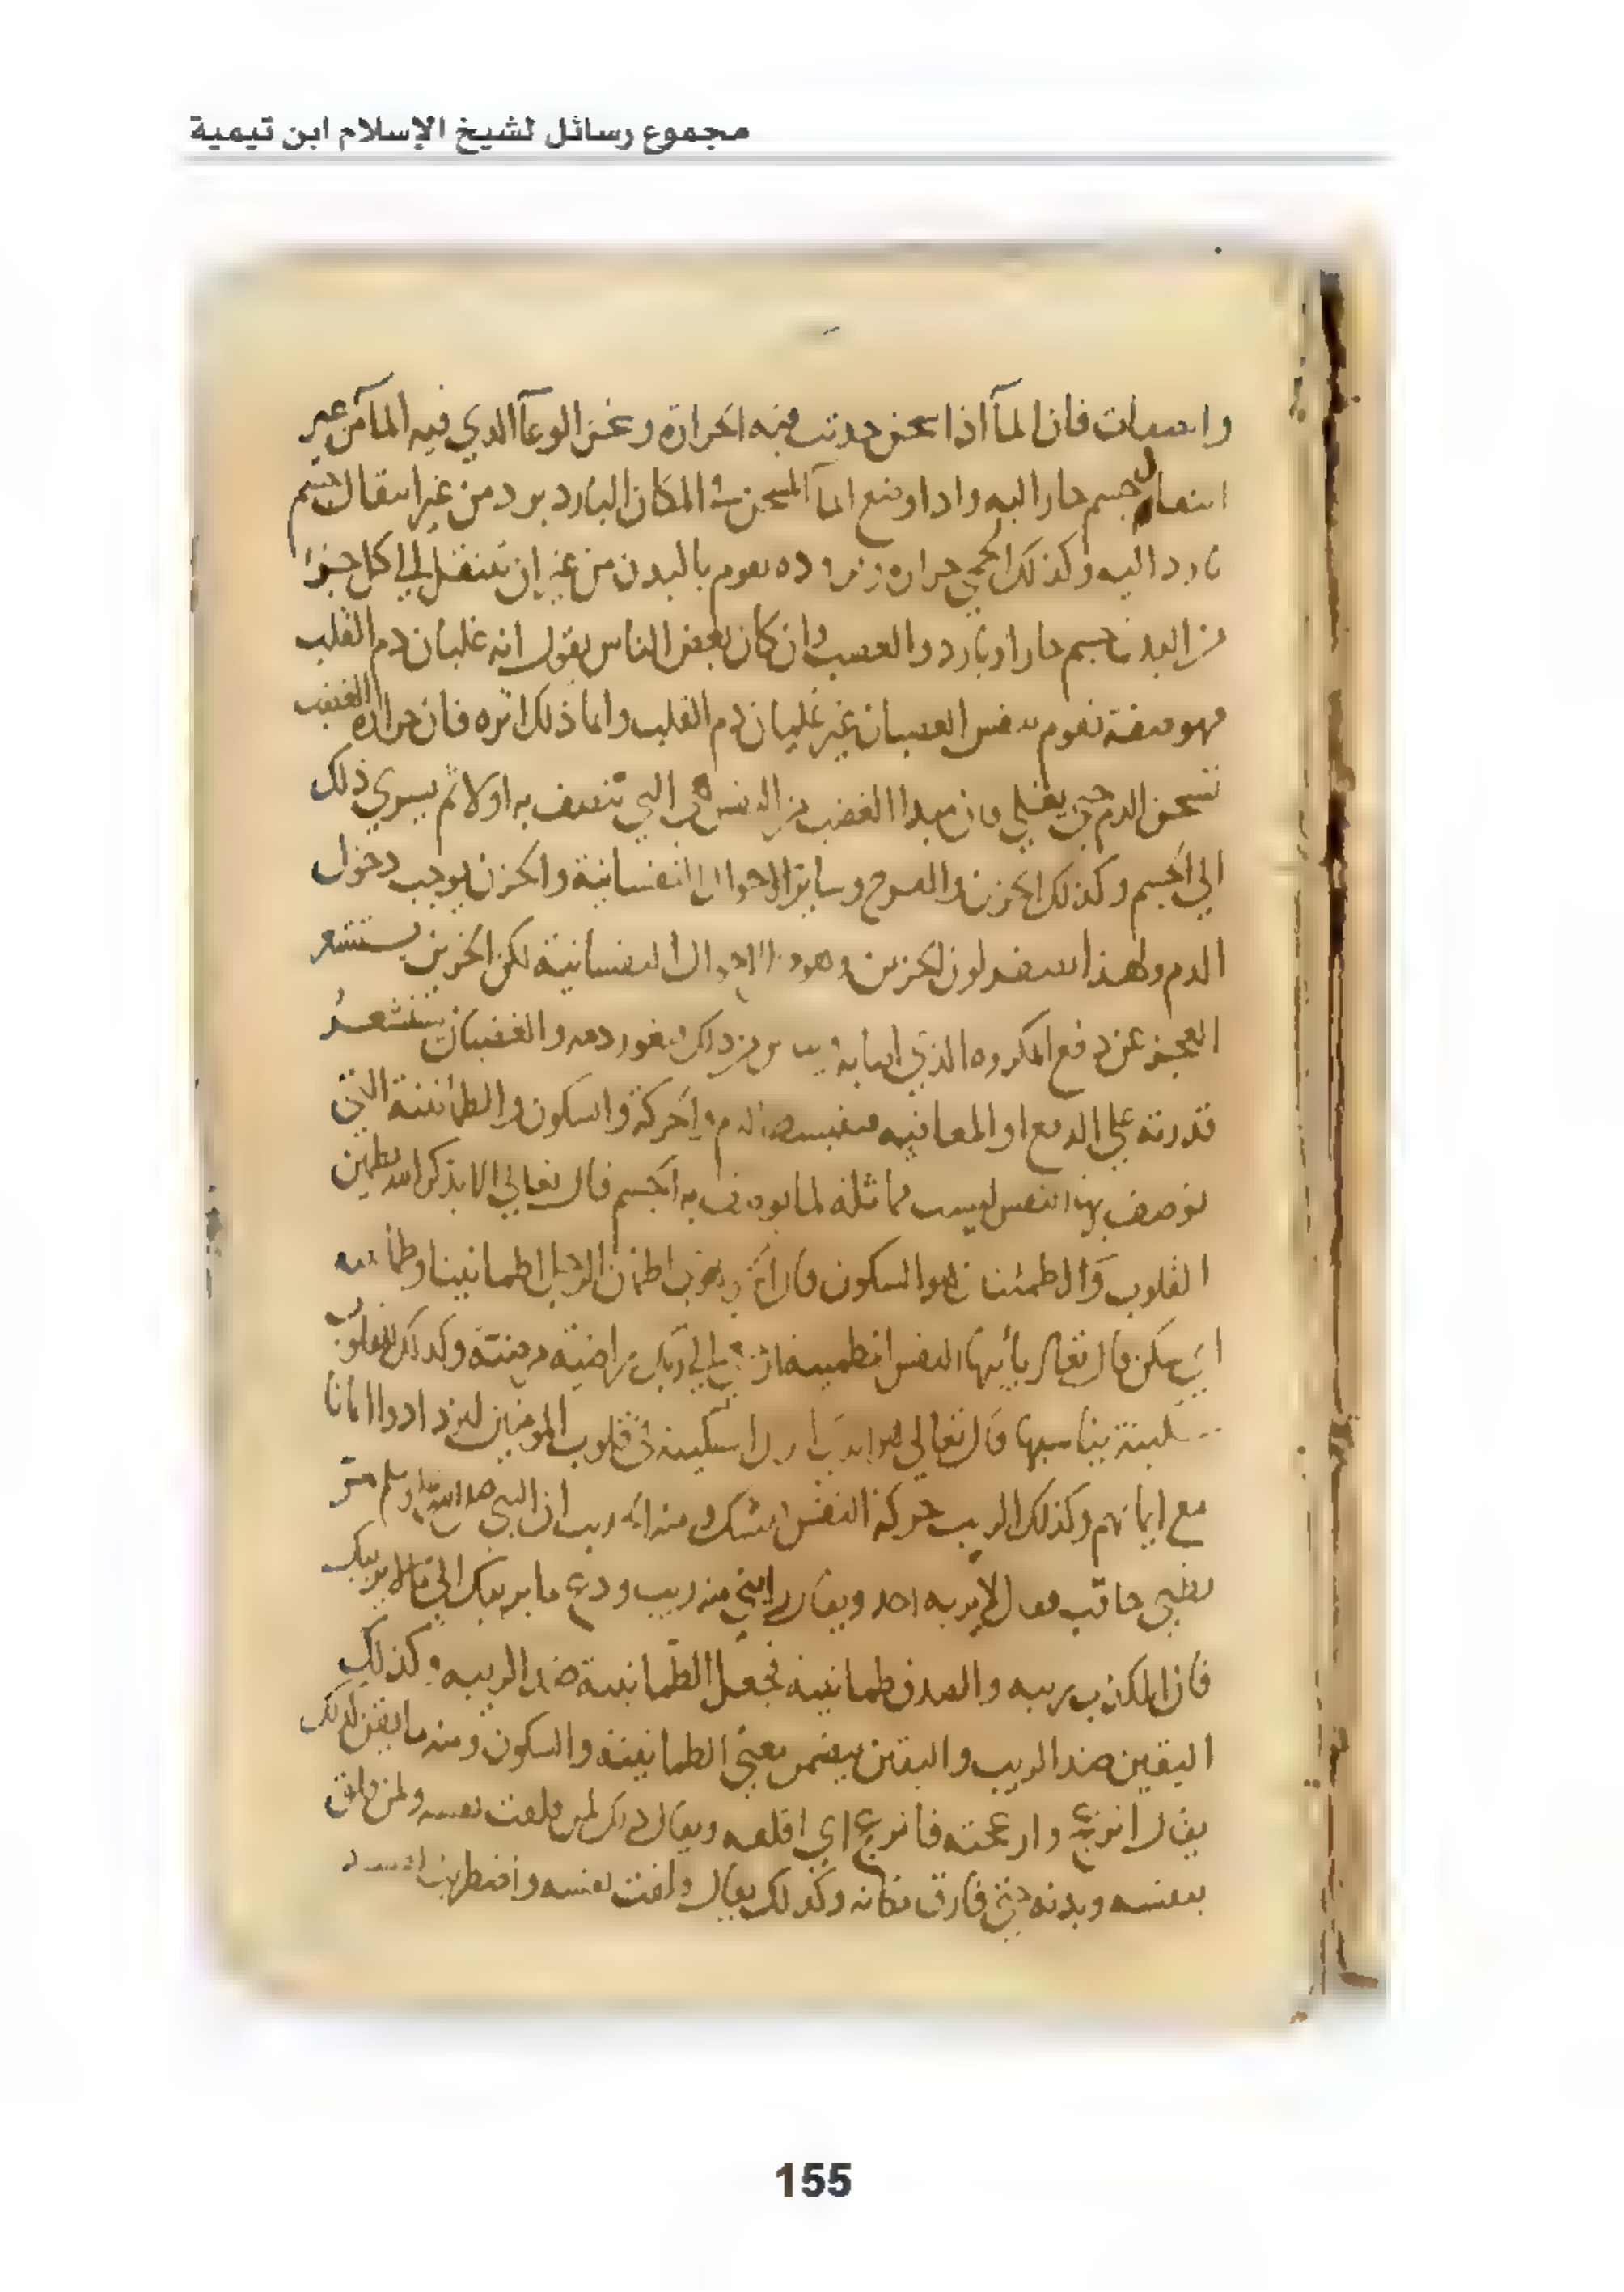 مجموع رسائل لشيخ الإسلام ابن تيمية
فان المآ اذا سخن حدثت فيه الحرارة وسخن الوعآ الذي فيه المآ من غير
جسم حار اليه واذا وضع المآ المسخن في المكان البارد برد من غير انتقال جسم
بارد اليه وكذلك الحمى حراره وبروده تقوم بالبدن من غير ان تنتقل الى كل جزء
من البدن جسم حار او بارد والغضب وان كان بعض الناس يقول انه غليان دم القلب
فهو صفة تقوم بنفس الغضبان غير غليان دم القلب وانما ذلك اثره فان حراره الغضب
تسخن الدم حتى يغلي فان مبدا الغضب من النفس هي التي تتصف به اولا ثم يسري ذلك
الى الجسم وكذلك الحزن والفرح وساير الاحوال النفسانية والحزن يوجب دخول
الدم ولهذا يصفر لون الحزين وهو من الاحوال النفسانية لكن الحزين يستشعر
العجز عن دفع المكروه الذي اصابه من ذلك فيغور دمه والغضبان يستشعر
قدرته على الدفع او المعاقبه فينبسط الدم والحركة والسكون والطمانينة التي
توصف بها النفس ليست مماثلة لما يوصف به الجسم قال تعالى الا بذكر الله تطمين
القلوب والاطمئنان هو السكون قال الجوهري اطمان الرجل اطمانينا وطمانينه
اي سكن قال تعالى يأيتها النفس المطمينة ارجعي الى ربك راضية مرضية وكذلك للقلوب
سكينة تناسبها قال تعالى هو الذي انزل السكينة في قلوب المومنين ليزدادوا ايمانا
مع ايمانهم وكذلك الريب حركة النفس للشك ومنه الحديث ان النبي صلى الله عليه وسلم مر
بظبي حاقف فقال لا يريبه احد ويقال رابني منه ريب ودع ما يريبك الى ما لا يريبك
فان الكذب ريبه والصدق طمانينه فجعل الطمانينة ضد الريبه وكذلك
اليقين ضد الريب واليقين يتضمن معنى الطمانينة والسكون ومنه ما يقن لذلك
يقال انزعج وازعجته فانزعج اي اقلعه ويقال ذلك لمن قلقت نفسه ولمن قلق
بنفسه وبدنه حتى فارق مكانه وكذلك يقال قلقت نفسه واضطربت
155